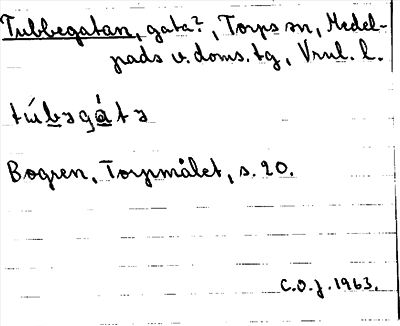 Tubbegatan, gata?, Torps sn, Medel-
pads v. doms. tg, Vrnl. l.
túbəgátə
Bogren, Torpmålet, s. 20.
C.O.J. 1963.